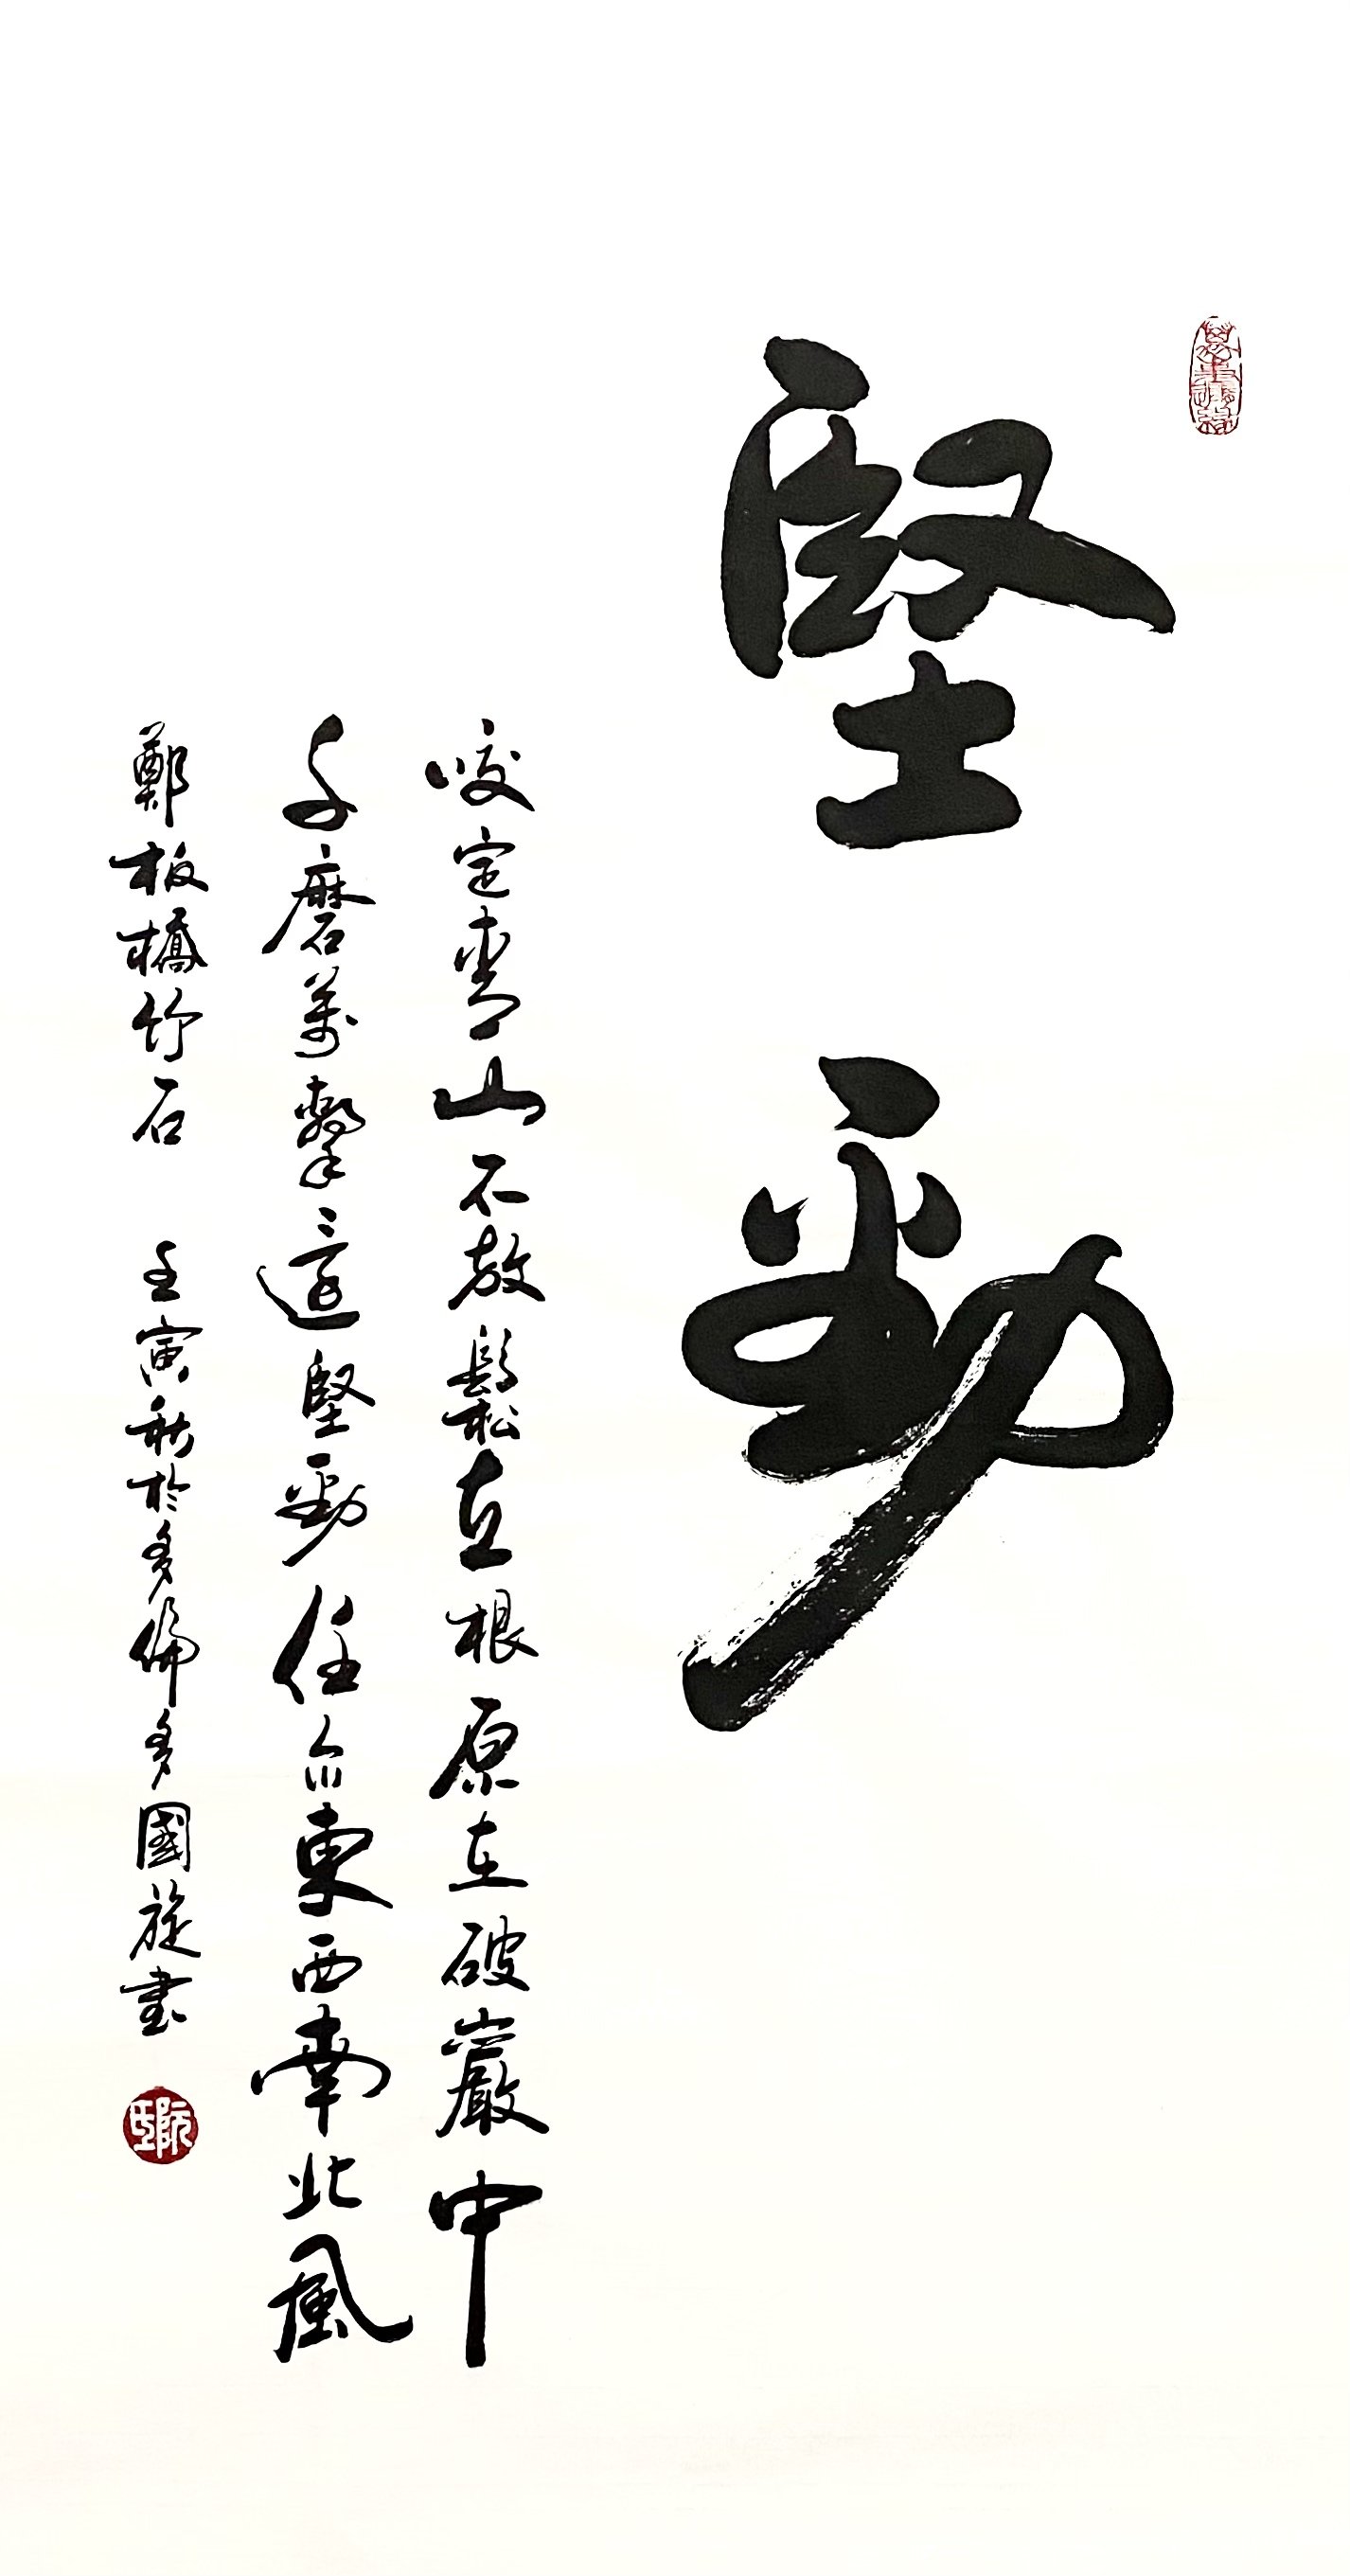 堅勁
咬定青山不放鬆立根原在破巖中
千磨萬擊還堅勁任尒東西南北風
鄭板橋竹石 壬寅秋於多倫多國旋書